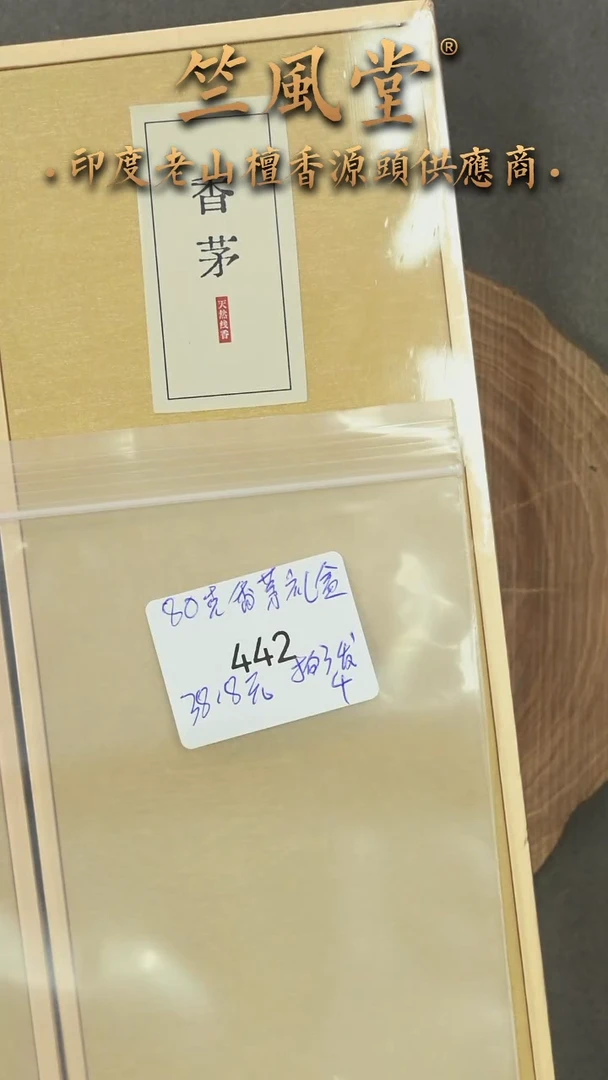 竺風堂®
·印度老山檀香源頭供應商·
香茅
天然线香
80克香茅礼盒
442
38.8元 拍3发
4